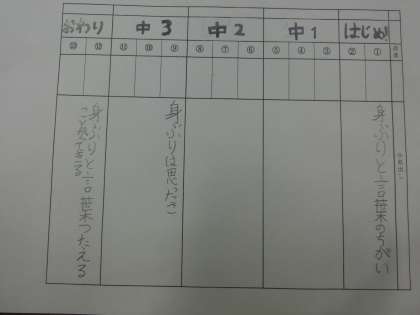 はじめ
中1
中2
中3
おわり
① ② ③ ④ ⑤ ⑥ ⑦ ⑧ ⑨ ⑩ ⑪ ⑫ ⑬
身ぶりと言葉のちがい
身ぶりは思ださ
身ぶりと言葉つたえる
ことができる